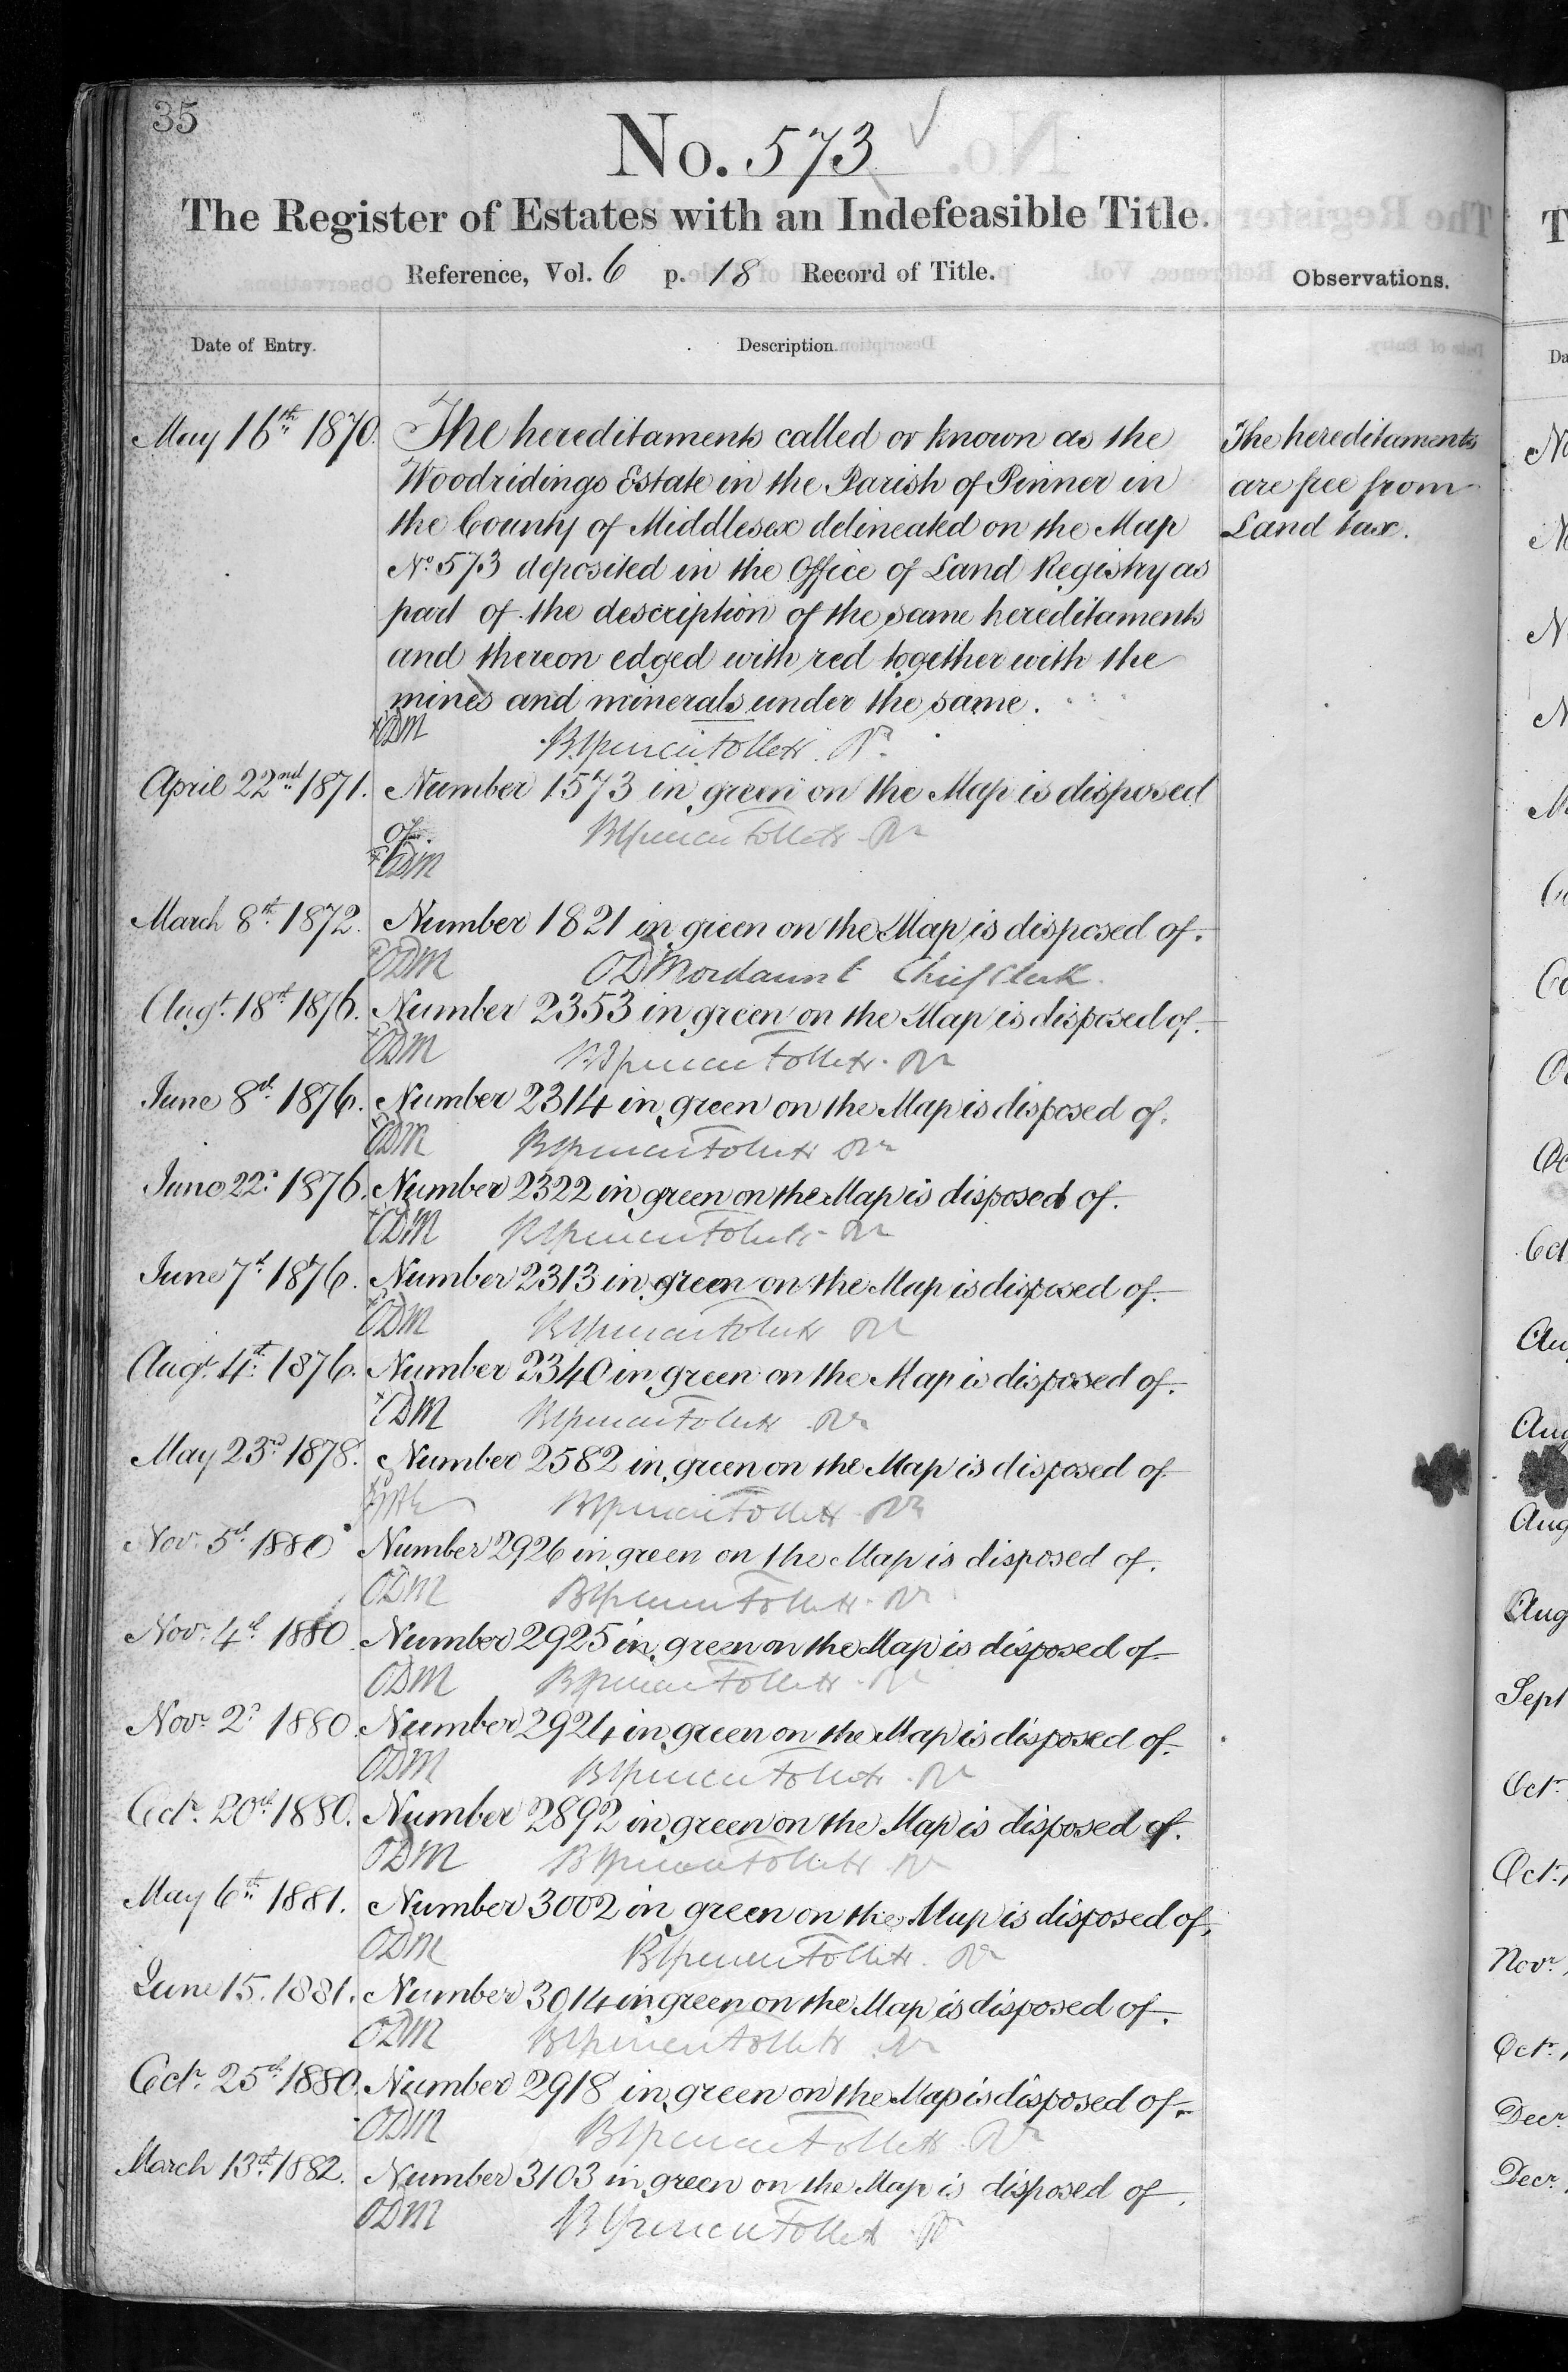 35
No. 573 ✓
The Register of Estates with an Indefeasible Title.
Reference, Vol. 6 p. 18 Record of Title.
Observations.
Date of Entry.
Description.
May 16th 1870. The hereditaments called or known as the
Woodridings Estate in the Parish of Pinner in
the County of Middlesex delineated on the Map
No. 573 deposited in the Office of Land Registry as
part of the description of the same hereditaments
and thereon edged with red together with the
mines and minerals under the same.
The hereditaments
are free from
Land tax.
ODM Brent Spencer Follett Rr
April 22nd 1871. Number 1573 in green on the Map is disposed
of. BSpencer Follett Rr
ODM
March 8th 1872. Number 1821 in green on the Map is disposed of.
ODM ODMordaunt Chief Clerk.
Augt. 18th 1876. Number 2353 in green on the Map is disposed of.
ODM BSpencer Follett Rr
June 8th 1876. Number 2314 in green on the Map is disposed of.
ODM BSpencer Follett Rr
June 22d 1876. Number 2322 in green on the Map is disposed of.
ODM BSpencer Follett Rr
June 7th 1876. Number 2313 in green on the Map is disposed of.
ODM BSpencer Follett Rr
Augt. 4th 1876. Number 2340 in green on the Map is disposed of.
ODM BSpencer Follett Rr
May 23rd 1878. Number 2582 in green on the Map is disposed of
BSpencer Follett Rr
Nov. 5th 1880 Number 2926 in green on the Map is disposed of.
ODM BSpencer Follett Rr
Novr. 4th 1880 Number 2925 in green on the Map is disposed of
ODM BSpencer Follett Rr
Novr. 2d 1880. Number 2924 in green on the Map is disposed of.
ODM BSpencer Follett Rr
Octr. 20th 1880. Number 2892 in green on the Map is disposed of.
ODM BSpencer Follett Rr
May 6th 1881. Number 3002 in green on the Map is disposed of.
ODM BSpencer Follett Rr
June 15. 1881. Number 3014 in green on the Map is disposed of.
ODM BSpencer Follett Rr
Octr. 25th 1880. Number 2918 in green on the Map is disposed of.
ODM BSpencer Follett Rr
March 13th 1882. Number 3103 in green on the Map is disposed of.
ODM BSpencer Follett Rr